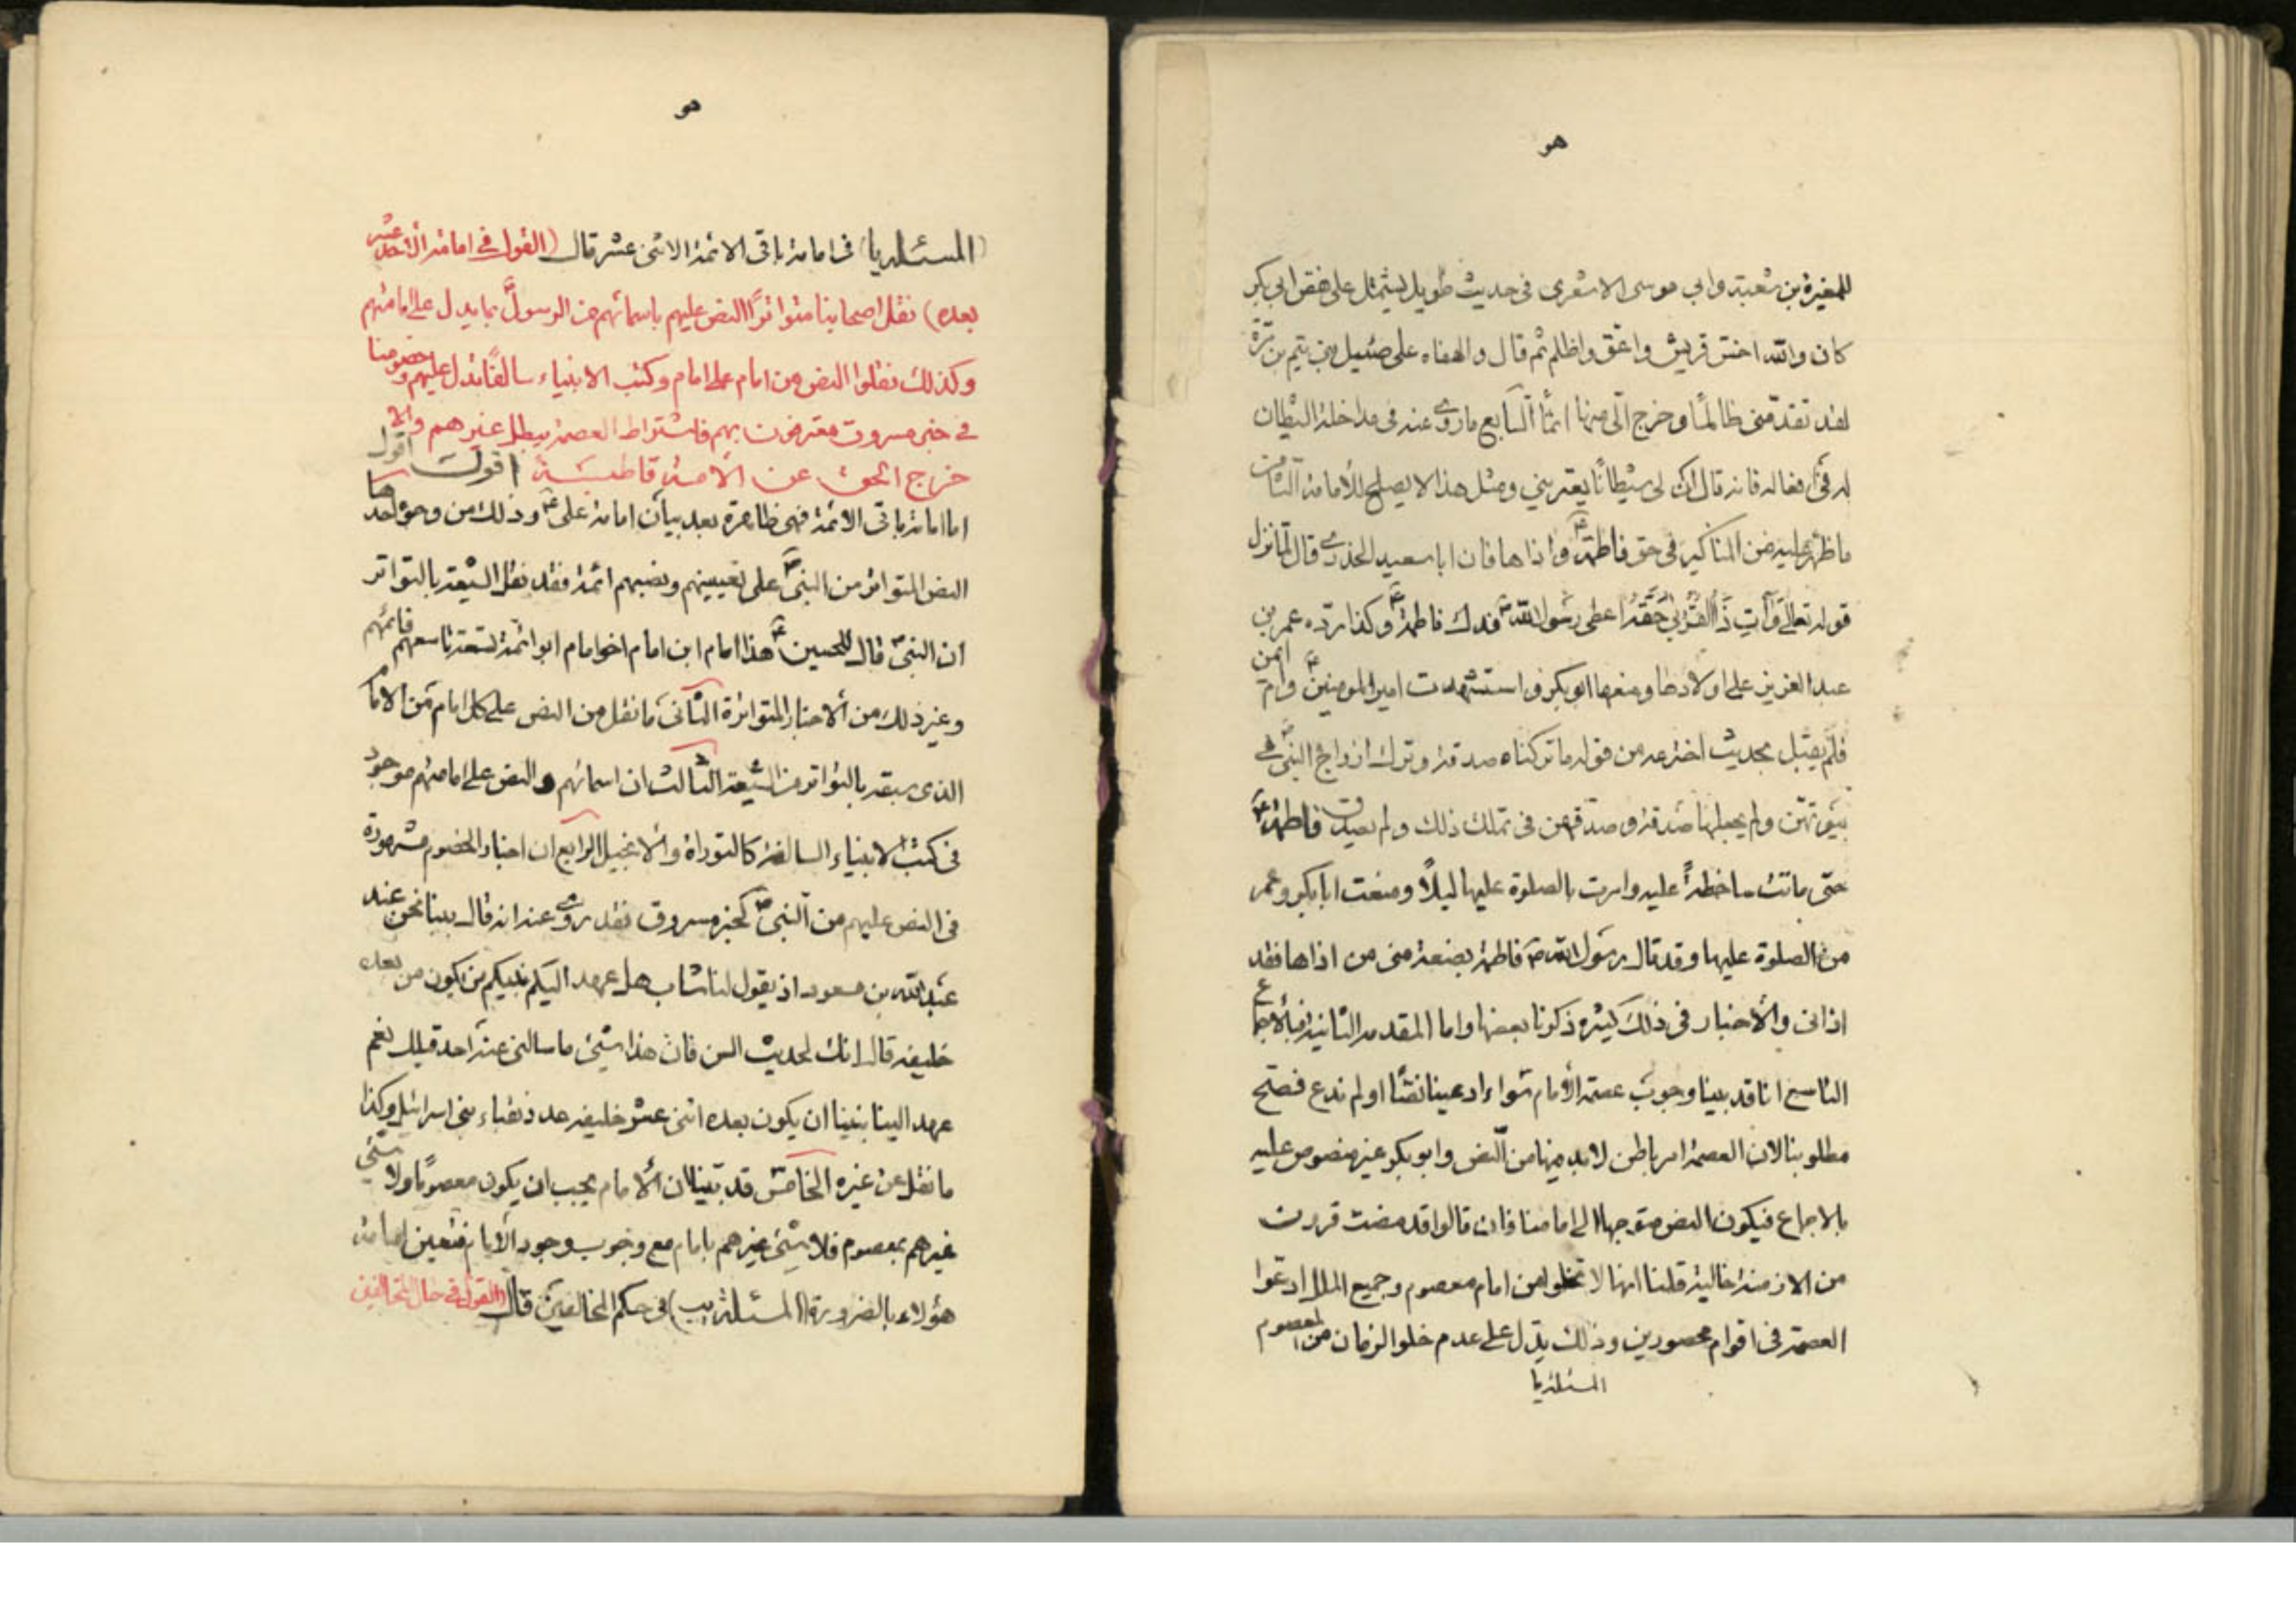 هو
للمغيرة بن شعبة وابي موسى الاشعرى فى حديث طويل يشتمل على نقص ابى بكر
كان والله احسد قريش واعق واظلم ثم قال والهفاه على ضئيل بنى تيم بن مرة
لقد تقدمنى ظالمًا وخرج الىّ منها اثمًا السابع ما روى عنه فى مداخلة الشيطان
له فى افعاله فانه قال ان لى شيطانًا يعترينى ومثل هذا لا يصلح للأمامة الثامن
ما ظهر عليه من المناكير فى حق فاطمة ع واذاها فان ابا سعيد الخدرى قال لما نزل
قوله تعالى وَآتِ ذَا الْقُرْبىٰ حَقَّهُ اعطى رسول الله ص فدك فاطمة ع وكذا ردّه عمر بن
عبد العزيز على اولادها ومنعها ابو بكر واستشهدت امير المومنين ع وام ايمن
فلم يقبل بحديث اخترعه من قوله ما تركناه صدقة وترك ازواج النبى ص فى
بيوتهن ولم يجعلها صدقة وصدقهن فى تملك ذلك ولم يصدق فاطمة ع
حتى ماتت ساخطةً عليه وامرت بالصلوة عليها ليلًا ومنعت ابا بكر وعمر
من الصلوة عليها وقد قال رسول الله ص فاطمة بضعة منى من اذاها فقد
اذانى والأخبار فى ذلك كثيرة ذكرنا بعضها واما المقدمه الثانية فبالاجماع
التاسع انا قد بينا وجوب عصمة الأمام سواء ادعينا نصًّا او لم ندع فصح
مطلوبنا لان العصمة امر باطن لابد منها من النص وابو بكر غير منصوص عليه
بالاجماع فيكون النص متوجها الى امامنا فان قالوا قد مضت قرون
من الازمنة خالية قلنا انها لا تخلو من امام معصوم وجميع الملل ادعوا
العصمة فى اقوام محصورين وذلك يدل على عدم خلو الزمان من المعصوم
المسئلة يا
هو
(المسئلة يا) فى امامة باقى الائمة الاثنى عشر قال (القول فى امامة الأحد عشر
بعده) نقل اصحابنا متواترًا النص عليهم باسمائهم من الرسول ص بما يدل على امامتهم
وكذلك نقلوا النص من امام على امام وكتب الانبياء سالفًا تدل عليهم وخصومنا
فى خبر مسروق معترفون بهم فاشتراط العصمة يبطل غيرهم والا
خرج الحق عن الامة قاطبة اقول اقول
اما امامة باقى الائمة فهى ظاهرة بعد بيان امامة على ع وذلك من وجوه احدها
النص المتواتر من النبى ص على تعيينهم ونصبهم ائمة فقد نقل الشيعة بالتواتر
ان النبى ص قال للحسين ع هذا امام ابن امام اخو امام ابو ائمة تسعة تاسعهم قائمهم
وغير ذلك من الأخبار المتواترة الثانى ما نقل من النص على كل امام من الامام
الذى سبقه بالتواتر من الشيعة الثالث ان اسمائهم والنص على امامتهم موجود
فى كتب الانبياء السالفة كالتوراة والانجيل الرابع ان اخبار الخصوم مشهورة
فى النص عليهم من النبى ص كخبر مسروق فقد روى عنه انه قال بينا نحن عند
عبد الله بن مسعود اذ يقول لنا شاب هل عهد اليكم نبيكم من يكون من بعده
خليفه قال انك لحديث السن فان هذا شئ ما سالنى عنه احد قبلك نعم
عهد الينا نبينا ان يكون بعده اثنى عشر خليفه عدد نقباء بنى اسرائيل وكذا
ما نقل عن غيره الخامس قد بينا ان الأمام يجب ان يكون معصومًا ولا شئ
غيرهم بمعصوم فلا شئ غيرهم بامام مع وجوب وجود الأمام فتعين امامة
هؤلاء بالضرورة (المسئلة يب) فى حكم المخالفين قال (القول فى حال المخالفين